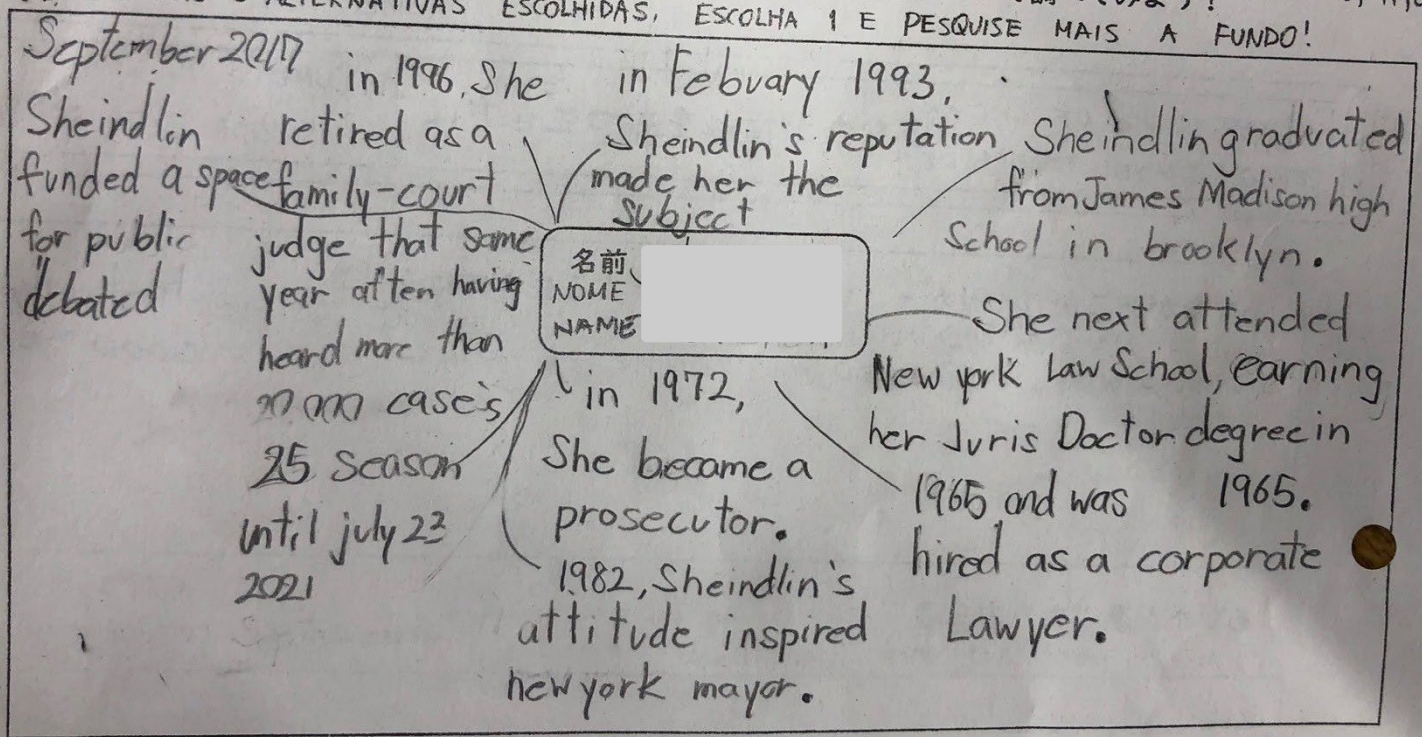 ALTERNATIVAS ESCOLHIDAS, ESCOLHA 1 E PESQUISE MAIS A FUNDO!
September 2017
Sheindlin
funded a space
for public
debated
in 1996, She
retired as a
family-court
judge that same
year aften having
heard more than
case's
25 season
until july 23
2021
in Febuary 1993,
Sheindlin's reputation
made her the
subject
Sheindlin graduated
from James Madison high
School in brooklyn.
名前
NOME
NAME
She next attended
New york Law School, earning
her Juris Doctor degree in
1965.
1965 and was
hired as a corporate
Lawyer.
in 1972,
She became a
prosecutor.
1982, Sheindlin's
attitude inspired
new york mayor.